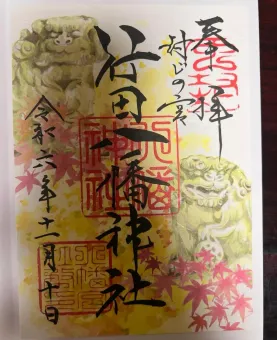 奉拝
封じの宮
行田八幡神社
令和六年十一月十日